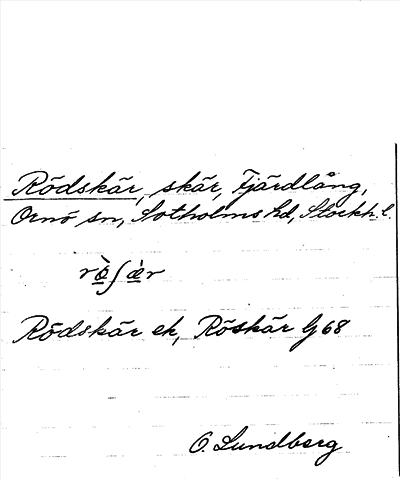 Rödskär, skär, Fjärdlång,
Ornö sn, Sotholms hd, Stockh. l.
rø̀ʃæ̀r
Rödskär ek, Röskär G 68
O. Lundberg